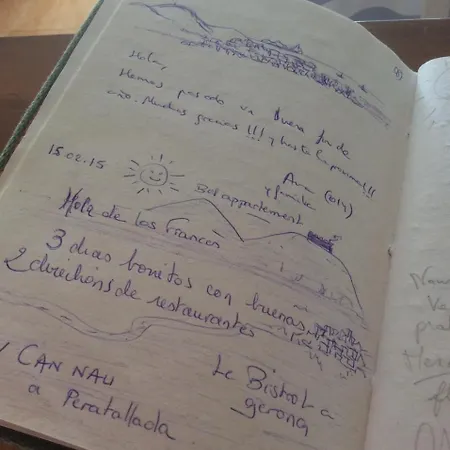 Hola,
Hemos pasado un buen fin de
año. Muchas gracias !!! y hasta la próxima!!!
Ana (Oly)
y familia
15.02.15
Bel appartement
Hola de los Francos
3 dias bonitos con buenas
2 direcciións de restaurantes
CAN NAU
a Peratallada
Le Bistrot a
gerona